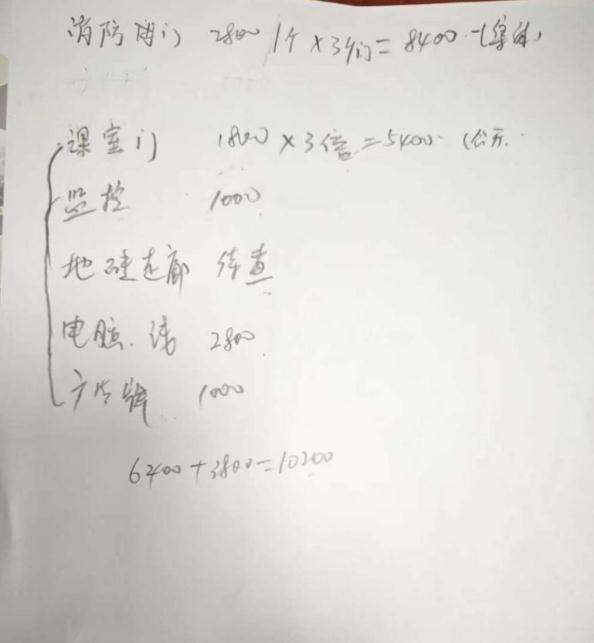 消防门 2800 1个×3个门=8400
课室门 1800×3倍=5400
监控 1000
地 走廊 待查
电脑.线 2800
广告牌 1000
6400+3800=10200